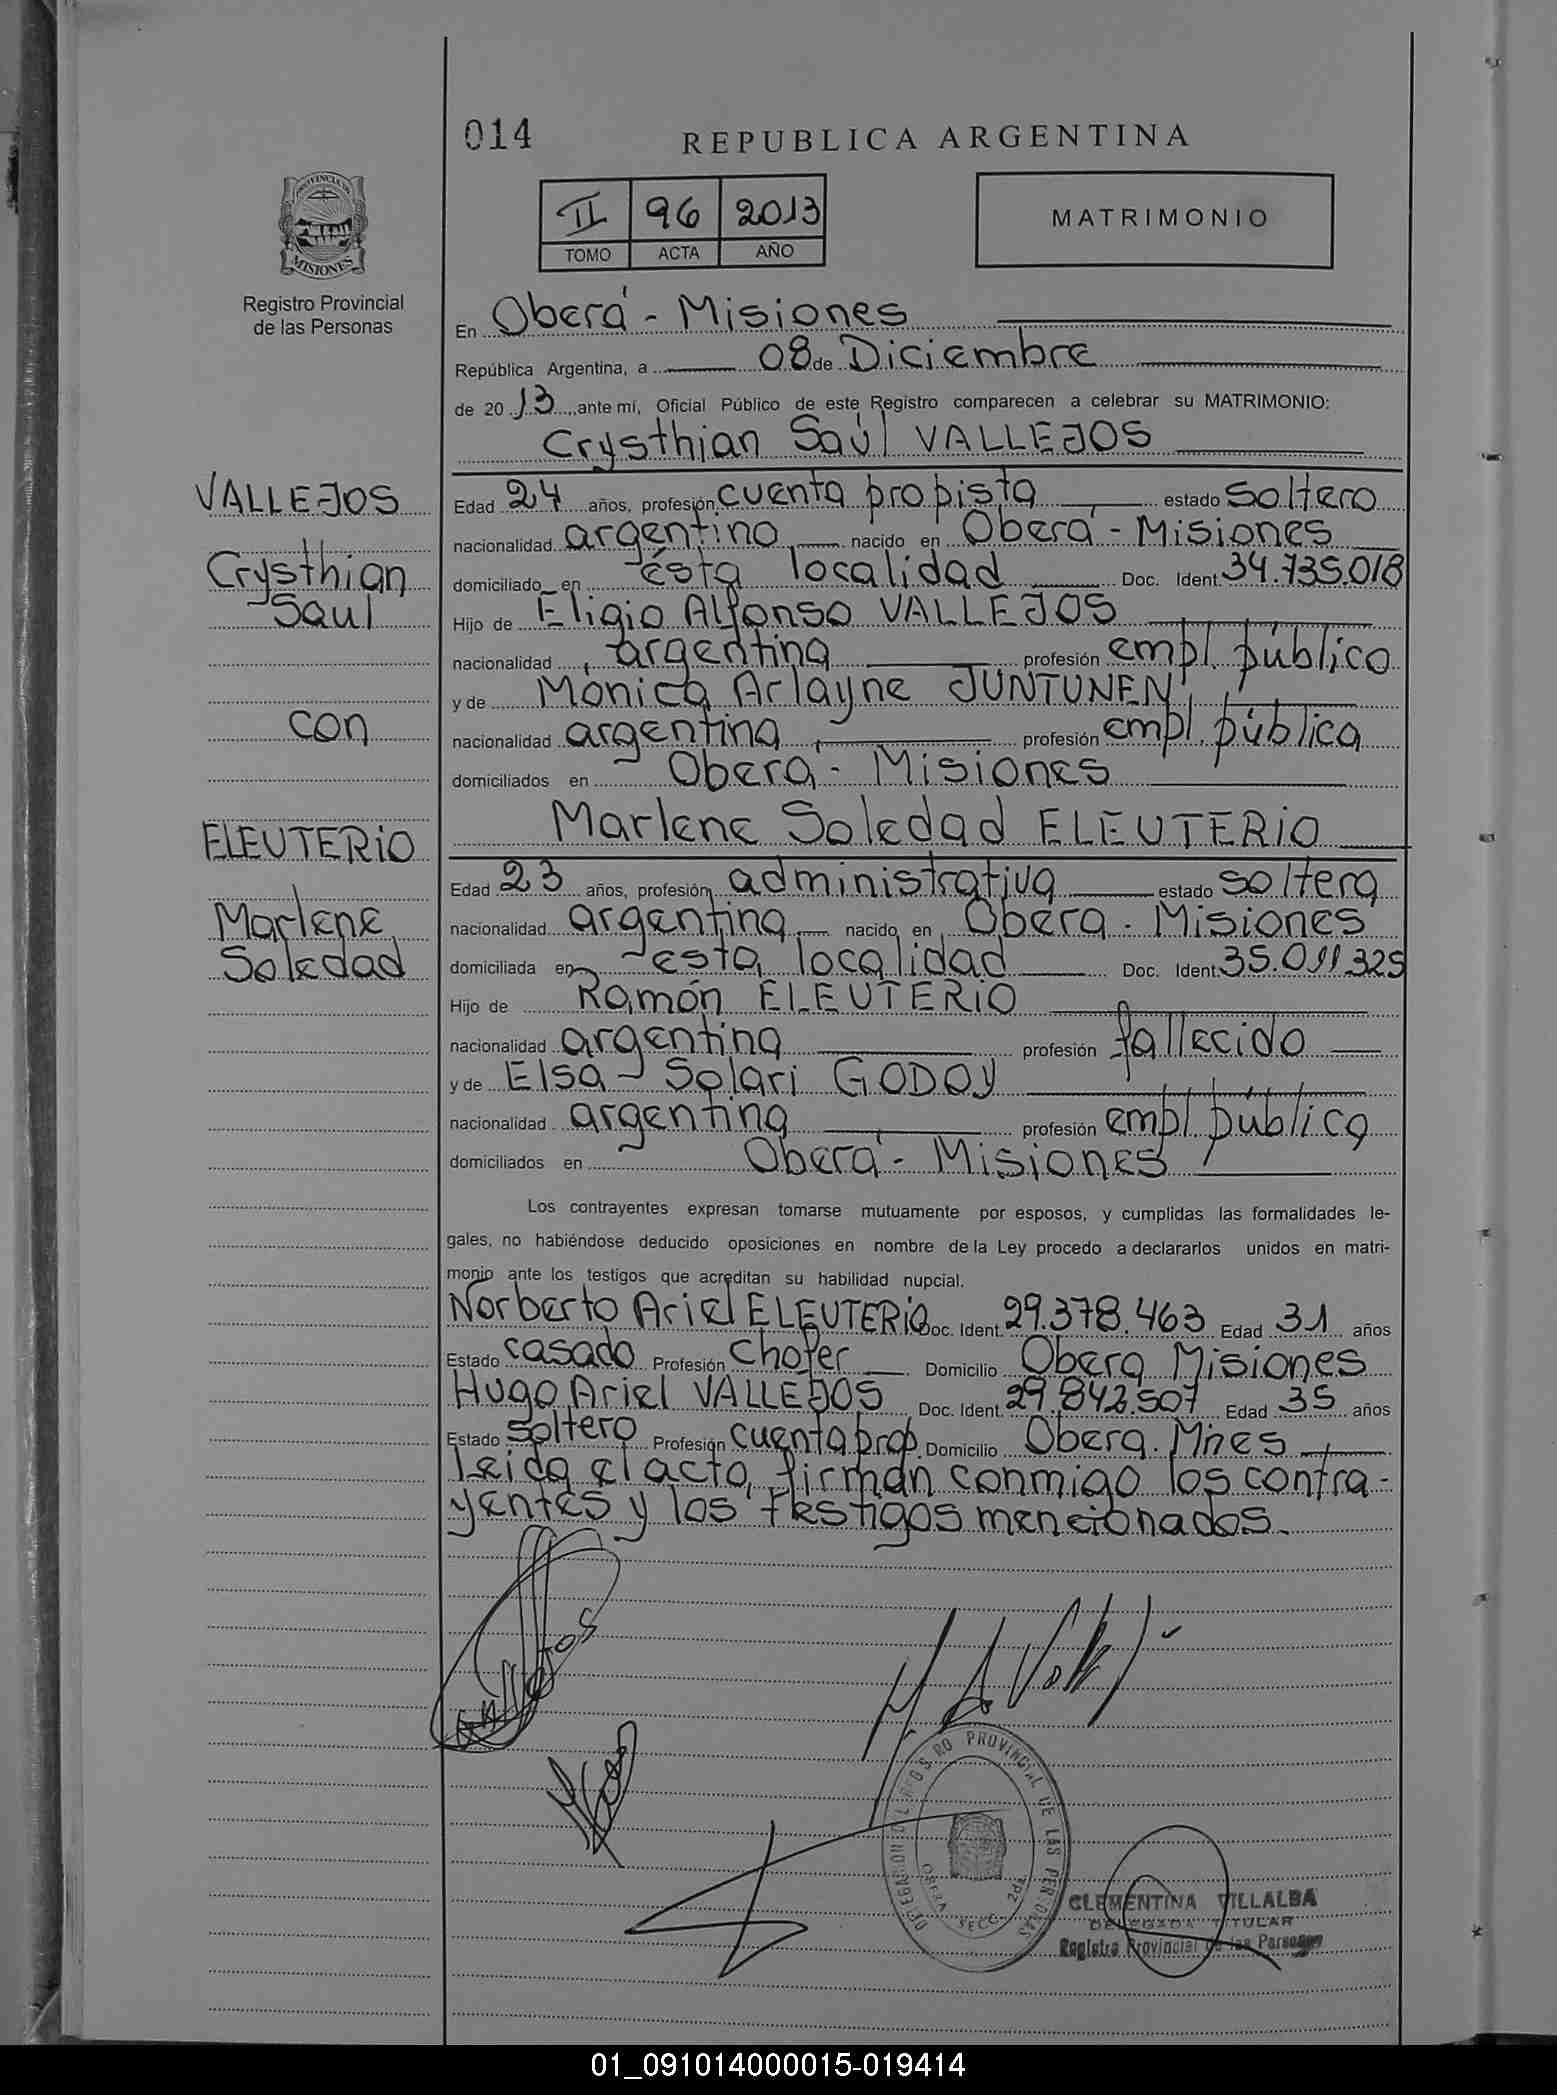 014
REPUBLICA ARGENTINA
PROVINCIA DE
MISIONES
Registro Provincial
de las Personas
II 96 2013
TOMO ACTA AÑO
MATRIMONIO
En Oberá - Misiones
República Argentina, a 08 de Diciembre
de 2013, ante mí, Oficial Público de este Registro comparecen a celebrar su MATRIMONIO:
Crysthian Saúl VALLEJOS
VALLEJOS
Crysthian
Saul
con
ELEUTERIO
Marlene
Soledad
Edad 24 años, profesión cuenta propista estado soltero
nacionalidad argentino nacido en Oberá - Misiones
domiciliado en ésta localidad Doc. Ident. 34.735.018
Hijo de Eligio Alfonso VALLEJOS
nacionalidad argentina profesión empl. público
y de Mónica Arlayne JUNTUNEN
nacionalidad argentina profesión empl. pública
domiciliados en Oberá - Misiones
Marlene Soledad ELEUTERIO
Edad 23 años, profesión administrativa estado soltera
nacionalidad argentina nacido en Obera - Misiones
domiciliada en esta localidad Doc. Ident. 35.011.325
Hijo de Ramón ELEUTERIO
nacionalidad argentina profesión fallecido
y de Elsa Solari GODOY
nacionalidad argentina profesión empl. pública
domiciliados en Oberá - Misiones
Los contrayentes expresan tomarse mutuamente por esposos, y cumplidas las formalidades le-
gales, no habiéndose deducido oposiciones en nombre de la Ley procedo a declararlos unidos en matri-
monio ante los testigos que acreditan su habilidad nupcial.
Norberto Ariel ELEUTERIO Doc. Ident. 29.378.463 Edad 31 años
Estado casado Profesión chofer Domicilio Obera Misiones
Hugo Ariel VALLEJOS Doc. Ident. 29.842.507 Edad 35 años
Estado soltero Profesión cuenta prop. Domicilio Obera. Mnes
leída el acta, firman conmigo los contra-
yentes y los testigos mencionados.
PROVINCIAL DE LAS PERSONAS
OBERA SECC. 2da.
CLEMENTINA VILLALBA
DELEGADA TITULAR
Registro Provincial de las Personas
01_091014000015-019414